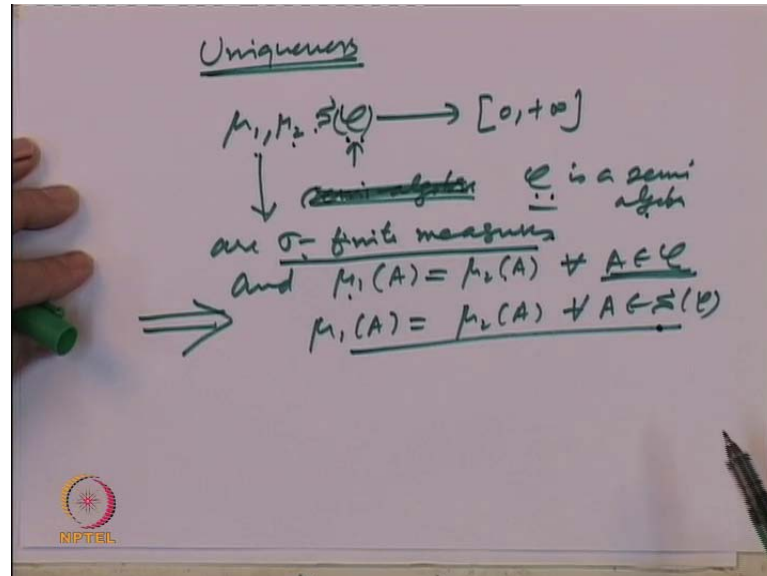 Uniqueness
μ₁, μ₂ S(𝒞) ⟶ [0, +∞]
↓ ↑ 𝒞 is a semi
algebra
are σ-finite measures
and μ₁(A) = μ₂(A) ∀ A ∈ 𝒞
⟹ μ₁(A) = μ₂(A) ∀ A ∈ S(𝒞)
NPTEL